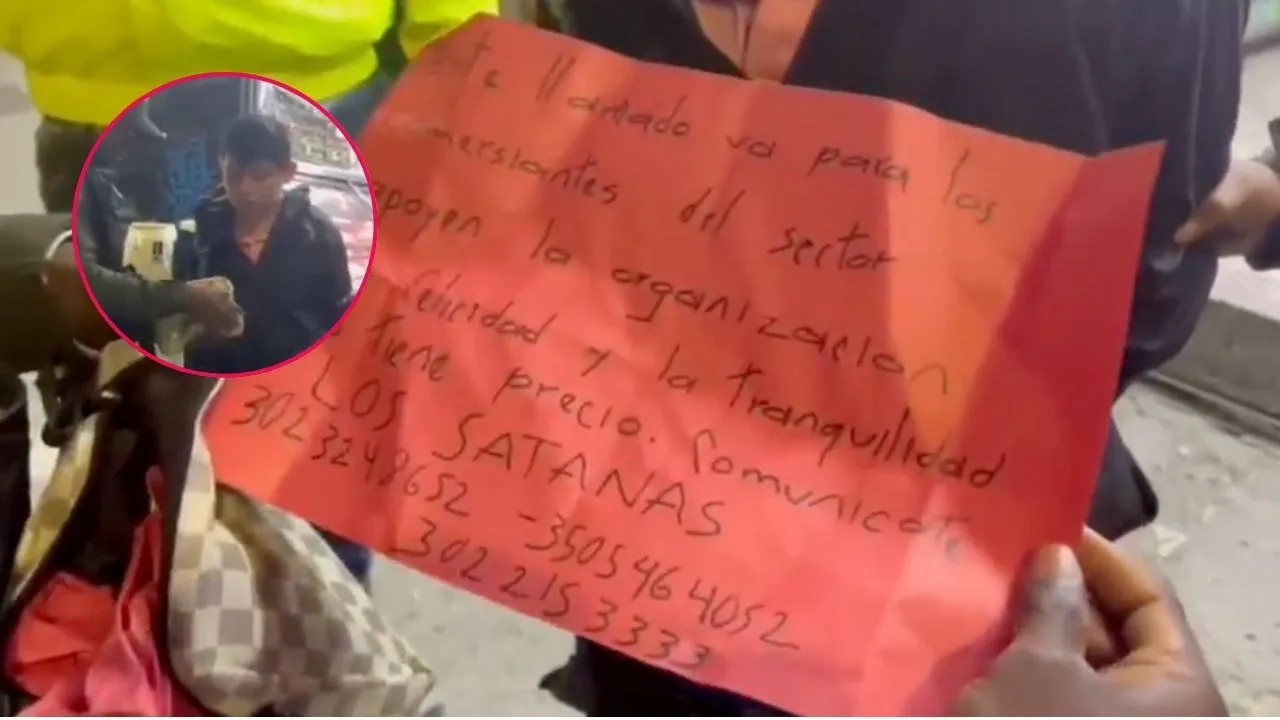 te llamado va para los
mersiantes del sector
apoyen la organizacion
felicidad y la tranquilidad
tiene precio. Comunicate
LOS SATANAS
302 3248652 - 3505464052
302 215 3333